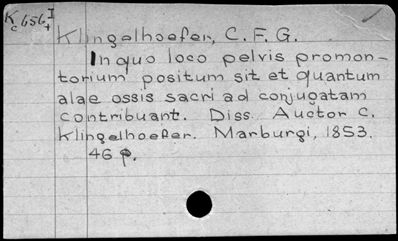 K 656 I
c +
Klingelhoefer, C. F. G.
In quo loco pelvis promon-
torium positum sit et quantum
alae ossis sacri ad conjugatam
contribuant. Diss. Auctor C.
Klingelhoefer. Marburgi, 1853.
46 p.